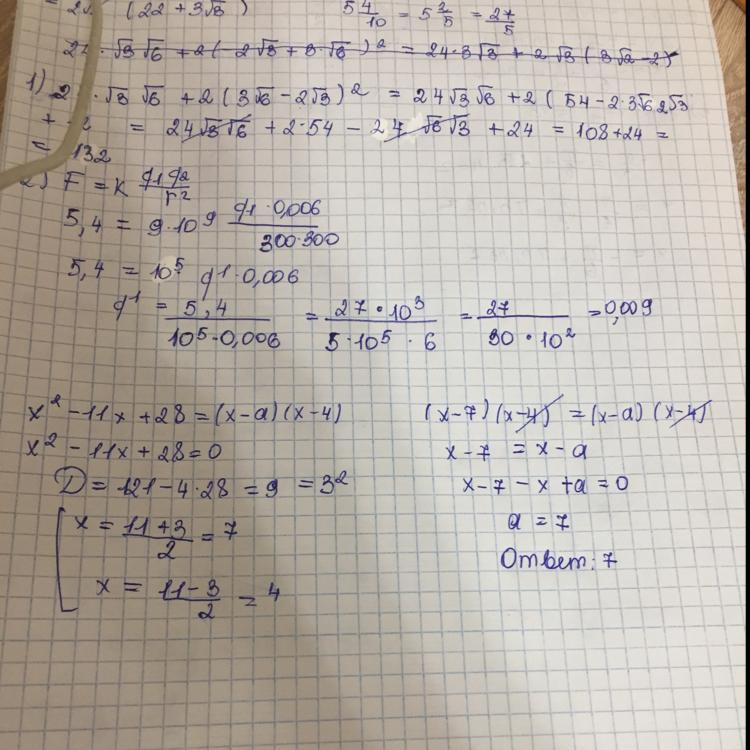 (22 + 3√3) 5 4/10 = 5 2/5 = 27/5
√3 √6 + 2( 2√3 + 3√3 )² = 24·3√3 + 2√3 ( 3√2 - 2)
1) 2 · √3 √6 + 2 ( 3√6 - 2√3 )² = 24√3√6 + 2 ( 54 - 2·3√6 2√3
+ 12 = 24√3√6 + 2·54 - 24 √6√3 + 24 = 108 + 24 =
= 132
2) F = K q1q2/r²
5,4 = 9·10⁹ q1·0,006/300·300
5,4 = 10⁵ q1·0,006
q1 = 5,4/10⁵·0,006 = 27·10³/5·10⁵·6 = 27/30·10² = 0,009
x² - 11x + 28 = (x-a)(x-4)
x² - 11x + 28 = 0
D = 121 - 4·28 = 9 = 3²
x = 11+3/2 = 7
x = 11-3/2 = 4
(x-7)(x-4) = (x-a)(x-4)
x-7 = x-a
x-7-x+a=0
a = 7
Ответ: 7